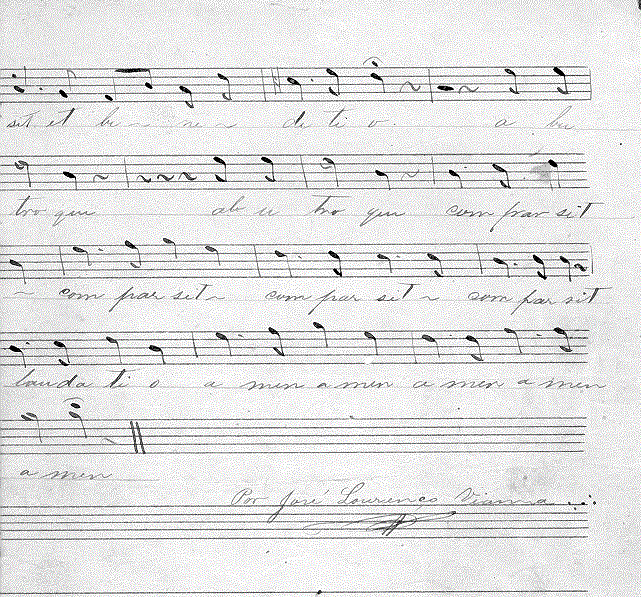 sit et be ne di ti o. a bu
tro que ab u tro que com par sit
com par sit com par sit com par sit
lauda ti o a men a men a men a men
a men
Por José Lourenço Vianna